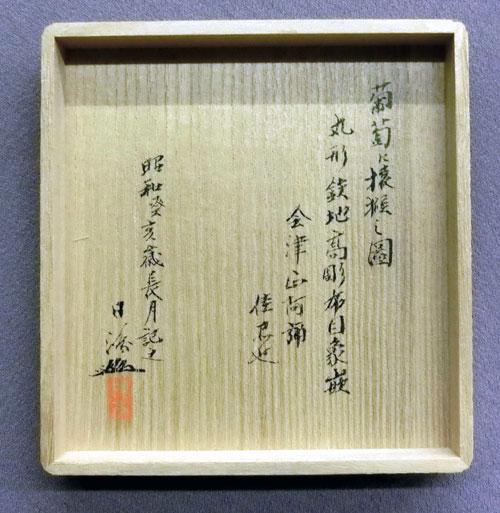 葡萄に猿猴之圖
丸形 鉄地高彫布目象嵌
会津正阿彌
佳品也
昭和癸亥歳長月記之